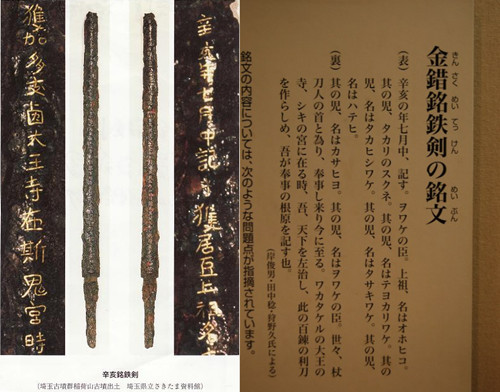 辛亥年七月中記乎獲居臣上祖名
獲加多支鹵大王寺在斯鬼宮時
辛亥銘鉄剣
(埼玉古墳群稲荷山古墳出土 埼玉県立さきたま資料館)
きん さく めい てっ けん めい ぶん
金錯銘鉄剣の銘文
(表)辛亥の年七月中、記す。ヲワケの臣。上祖、名はオホヒコ。
其の児、タカリのスクネ。其の児、名はテヨカリワケ。其の
児、名はタカヒシワケ。其の児、名はタサキワケ。其の児、
名はハテヒ。
(裏)其の児、名はカサヒヨ。其の児、名はヲワケの臣。世々、杖
刀人の首と為り、奉事し来り今に至る。ワカタケルの大王の
寺、シキの宮に在る時、吾、天下を左治し、此の百錬の利刀
を作らしめ、吾が奉事の根原を記す也。
(岸俊男・田中稔・狩野久氏による)
銘文の内容については、次のような問題点が指摘されています。